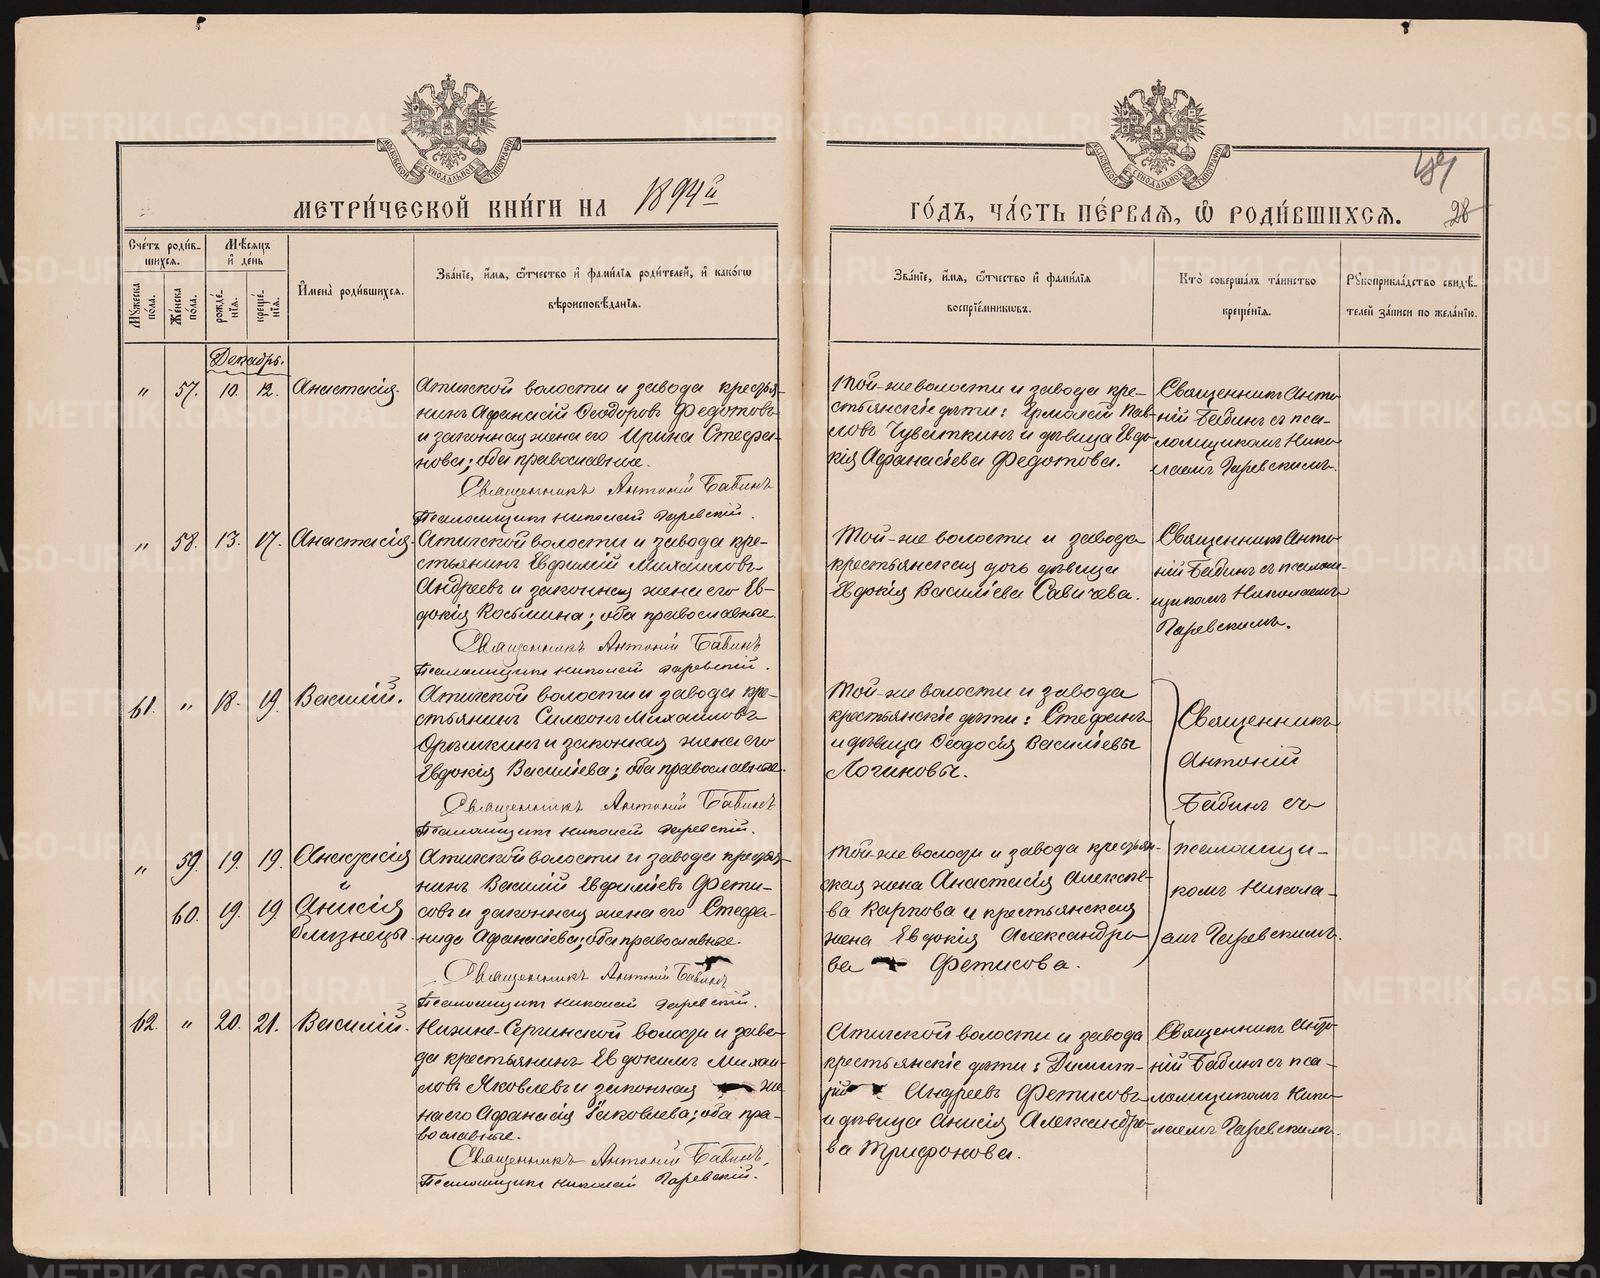 МЕТРИ́ЧЕСКОЙ КНИ́ГИ НА 1894й
ГО́ДЪ, ЧА́СТЬ ПЕ́РВАѦ, Ѽ РОДИ́ВШИХСѦ.
28
Сче́тъ роди́в-
шихсѧ.
Мѣ́сѧцъ
и҆ де́нь
Мꙋжеска по́ла.
Же́нска по́ла.
рожде́-
нїѧ.
креще́-
нїѧ.
И҆мена̀ роди́вшихсѧ.
Зва́нїе, и҆́мѧ, ѻ҆́тчество и҆ фами́лїѧ роди́телей, и҆ како́гѡ
вѣроисповѣ́данїѧ.
Зва́нїе, и҆́мѧ, ѻ҆́тчество и҆ фами́лїѧ
воспрїе́мникѡвъ.
Кто̀ соверша́лъ та́инство
креще́нїѧ.
Рꙋкоприкла́дство свидѣ́-
телей за́писи по жела́нїю.
Декабрь.
" 57. 10. 12. Анастасія
Атигской волости и завода крестья-
нинъ Афанасій Ѳеодоровъ Федотовъ
и законная жена его Ирина Стефа-
нова; оба православные.
Священникъ Антоній Бабинъ
Псаломщикъ Николай Гаревскій.
Той-же волости и завода кре-
стьянскіе дѣти: Ермолай Пав-
ловъ Чуваткинъ и дѣвица Евдо-
кія Афанасіева Федотова.
Священникъ Анто-
ній Бабинъ съ пса-
ломщикомъ Нико-
лаемъ Гаревскимъ.
" 58. 13. 17. Анастасія.
Атигской волости и завода кре-
стьянинъ Евфимій Михаиловъ
Андреевъ и законная жена его Ев-
докія Косьмина; оба православные.
Священникъ Антоній Бабинъ
Псаломщикъ Николай Гаревскій.
Той-же волости и завода
крестьянская дочь дѣвица
Евдокія Василіева Савичева.
Священникъ Анто-
ній Бабинъ съ псалом-
щикомъ Николаемъ
Гаревскимъ.
61. " 18. 19. Василій.
Атигской волости и завода кре-
стьянинъ Симеонъ Михаиловъ
и законная жена его
Евдокія Василіева; оба православные.
Священникъ Антоній Бабинъ
Псаломщикъ Николай Гаревскій.
Той-же волости и завода
крестьянскіе дѣти: Стефанъ
и дѣвица Ѳеодосія Василіевы
Логиновы.
Священникъ
Антоній
Бабинъ съ
псаломщи-
комъ Никола-
емъ Гаревскимъ.
" 59. 19. 19. Анастасія
и
60. 19. 19 Анисія
близнецы.
Атигской волости и завода крестья-
нинъ Василій Евфиміевъ Фети-
совъ и законная жена его Стефа-
нида Афанасіева; оба православные.
Священникъ Антоній Бабинъ
Псаломщикъ Николай Гаревскій.
Той-же волости и завода крестьян-
ская жена Анастасія Алексѣе-
ва Карпова и крестьянская
жена Евдокія Александро-
ва Фетисова.
62. " 20. 21. Василій.
Нижне-Сергинской волости и заво-
да крестьянинъ Евдокимъ Михаи-
ловъ Яковлевъ и законная же-
на его Афанасія Іаковлева; оба пра-
вославные.
Священникъ Антоній Бабинъ,
Псаломщикъ Николай Гаревскій.
Атигской волости и завода
крестьянскіе дѣти: Димит-
рій Андреевъ Фетисовъ
и дѣвица Анисія Александро-
ва Трифонова.
Священникъ Анто-
ній Бабинъ съ пса-
ломщикомъ Нико-
лаемъ Гаревскимъ.
METRIKI.GASO-URAL.RU